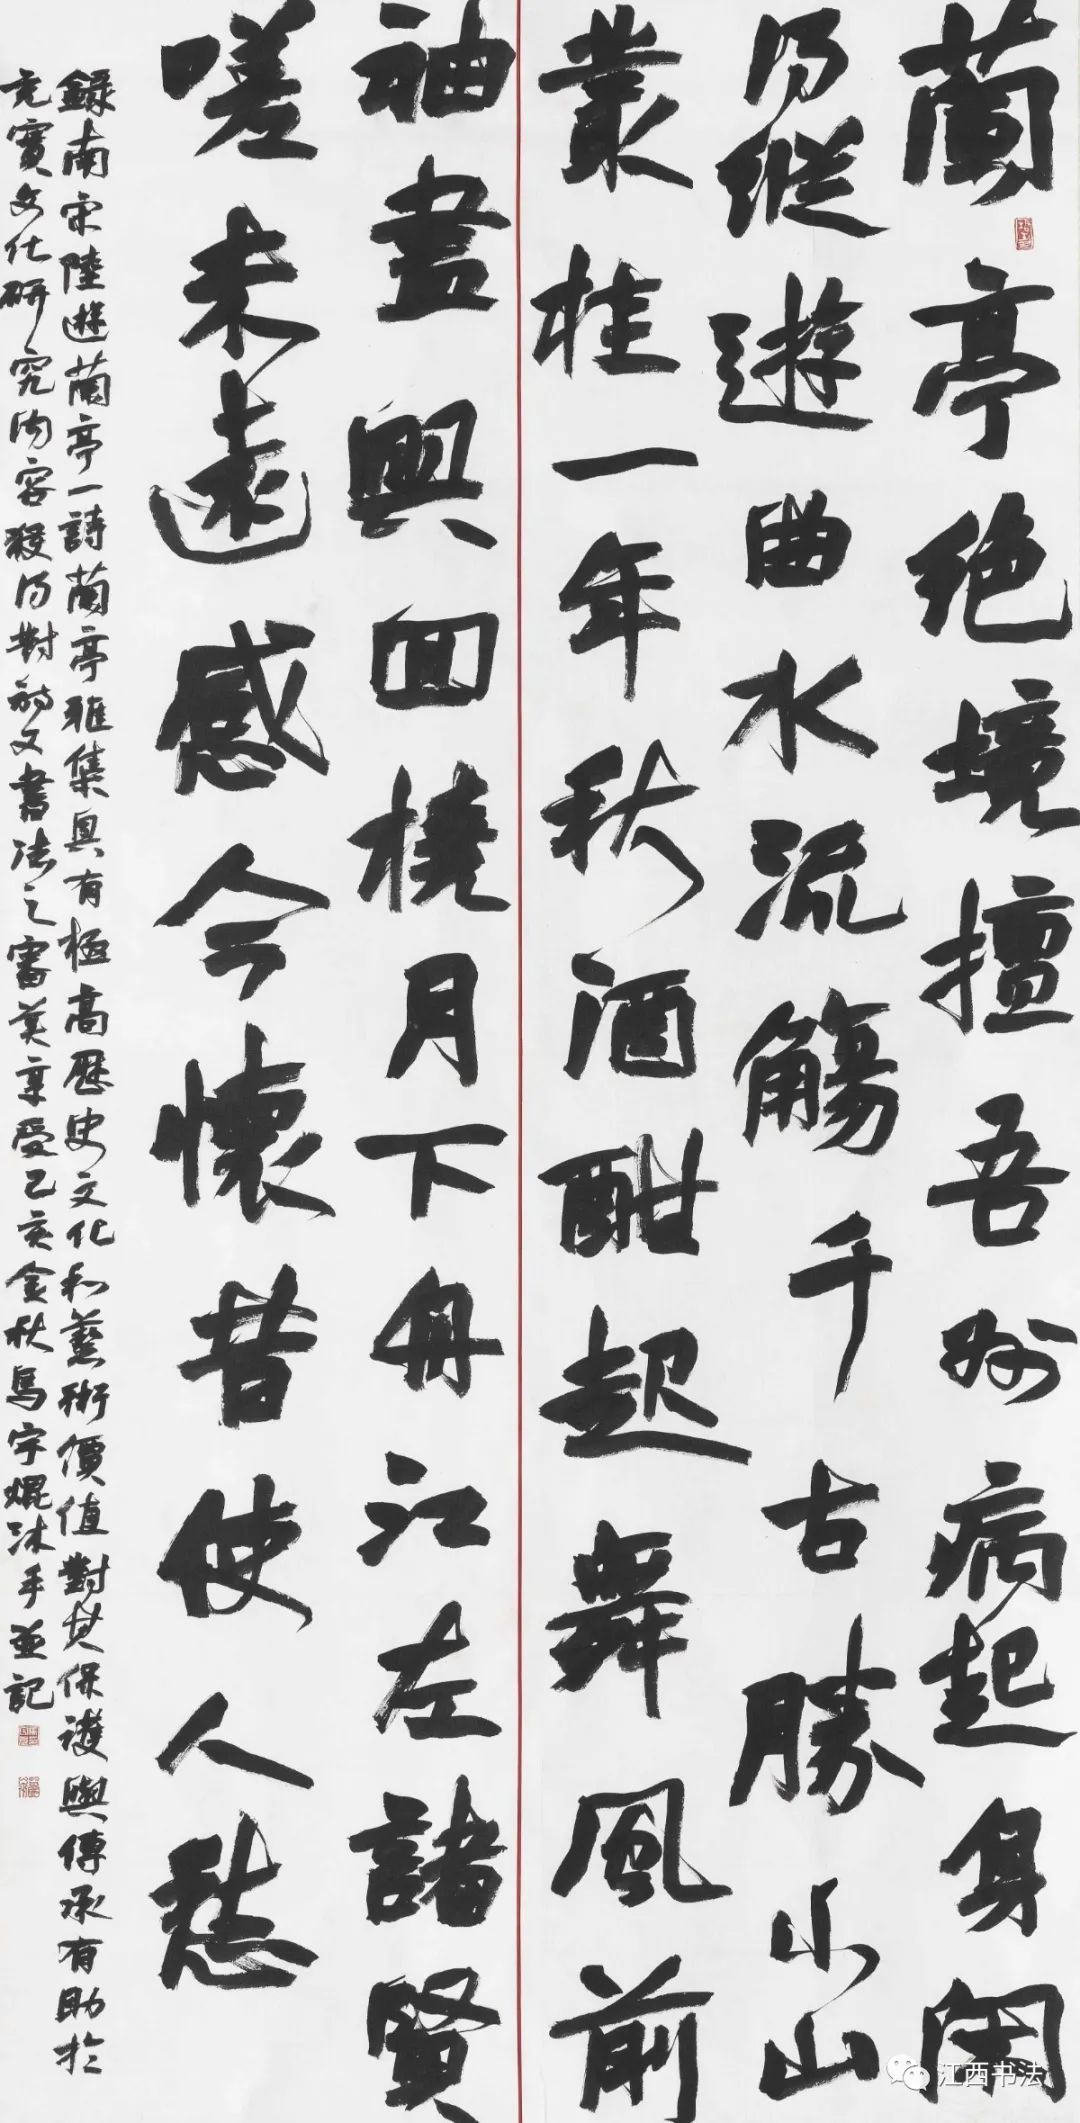 蘭亭绝境擅吾州病起身闲
得縱遊曲水流觴千古勝小山
叢桂一年秋酒酣起舞風前
袖盡興回橈月下舟江左諸賢
嗟未遠感今懷昔使人愁
錄南宋陸遊蘭亭一詩蘭亭雅集具有極高歷史文化和藝術價值對其保護與傳承有助於
充實文化研究內容獲得對詩文書法之審美享受己亥金秋馬宇焜沐手並記
江西书法